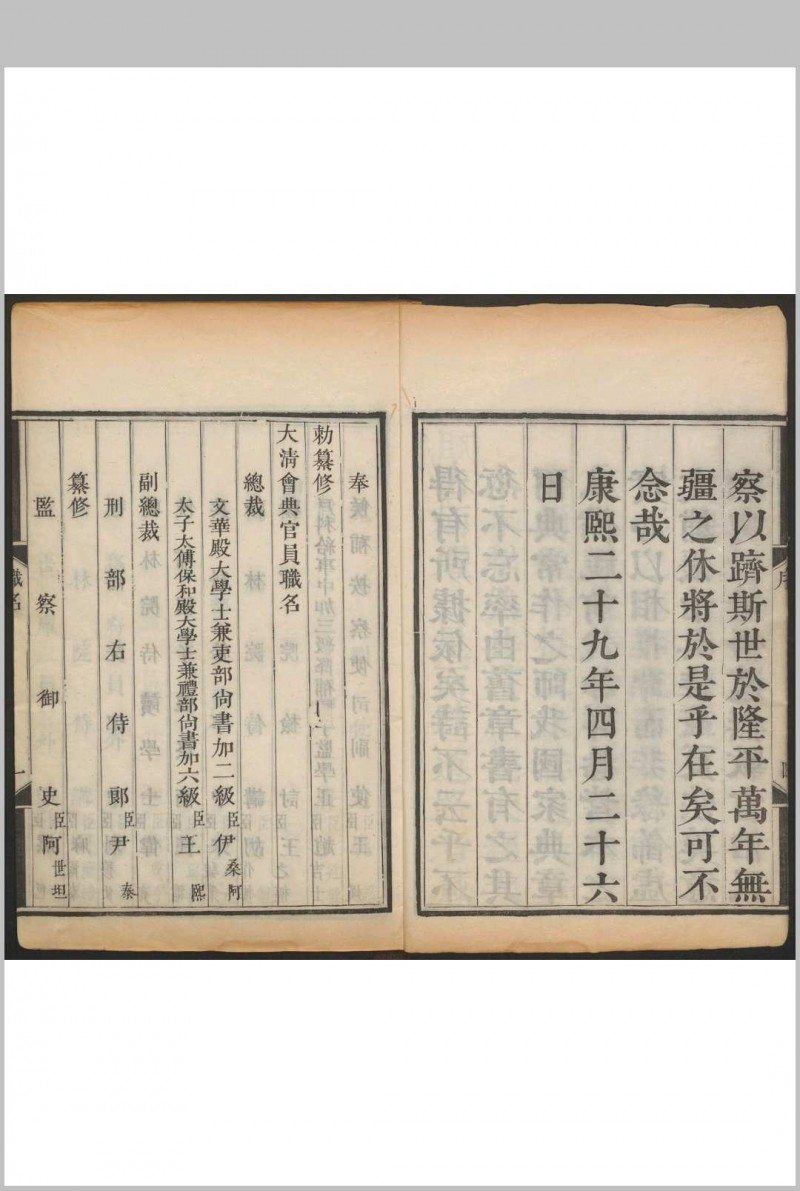 察以躋斯世於隆平萬年無
疆之休將於是乎在矣可不
念哉
康熙二十九年四月二十六
日
序
奉
勅纂修
大清會典官員職名
總裁
文華殿大學士兼吏部尙書加二級臣伊桑阿
太子太傅保和殿大學士兼禮部尙書加六級臣王熙
副總裁
刑部右侍郎臣尹泰
纂修
監察御史臣阿世坦
職名
一